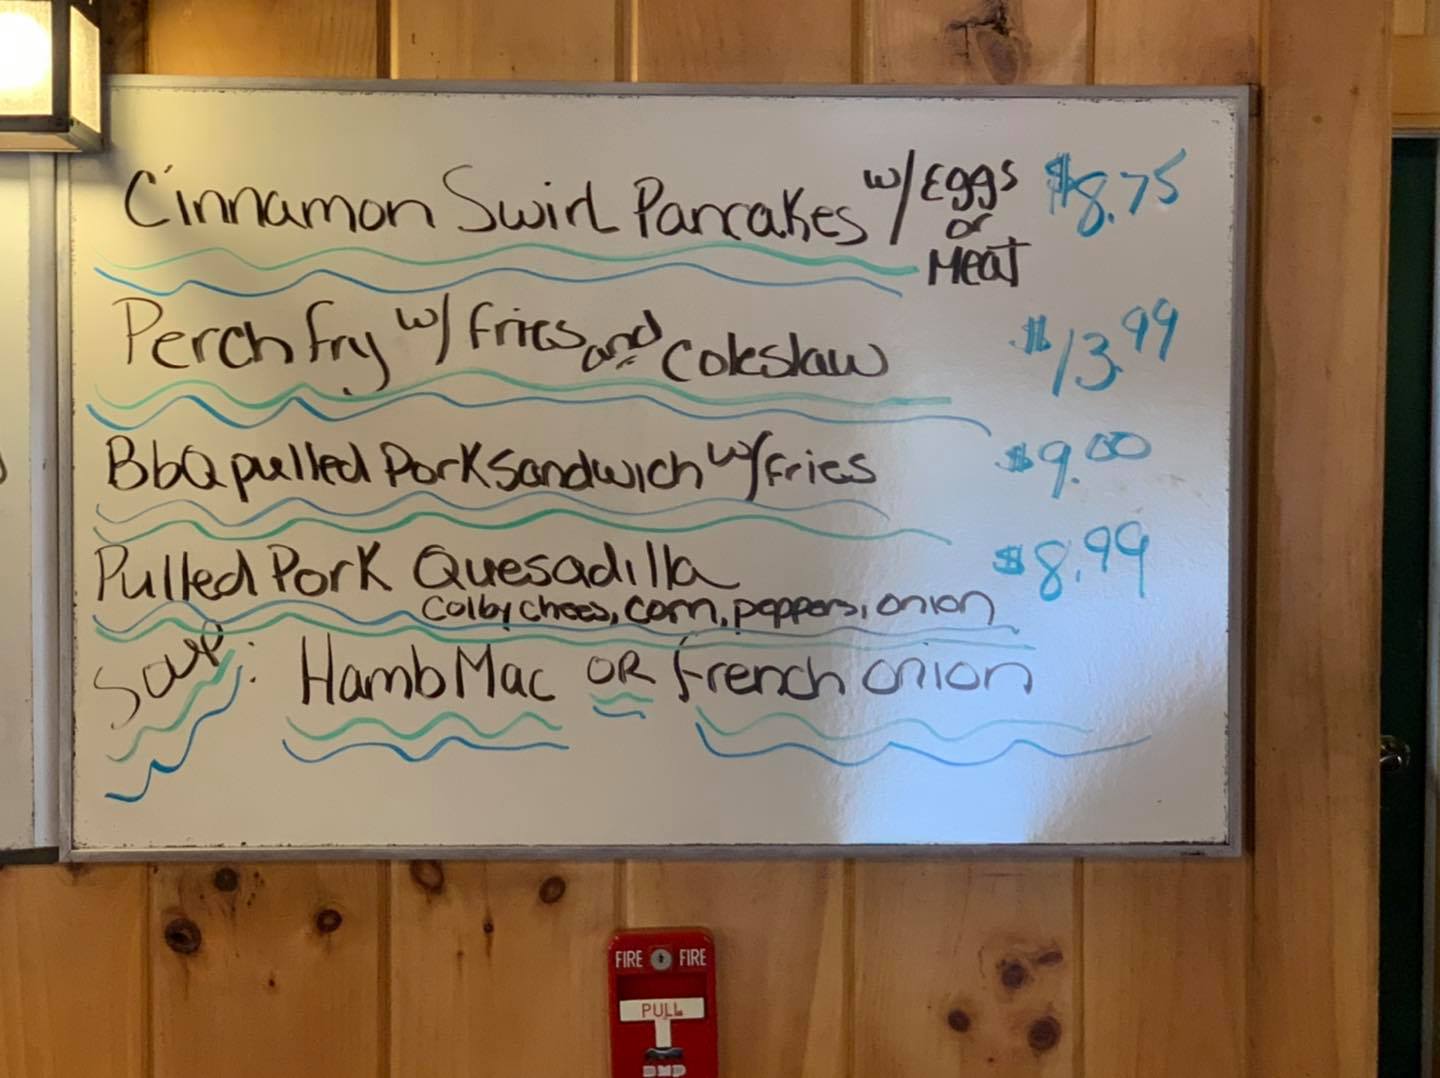 Cinnamon Swirl Pancakes w/ Eggs or Meat $8.75
Perch fry w/ fries and coleslaw $13.99
BbQ pulled Pork Sandwich w/ fries $9.00
Pulled Pork Quesadilla $8.99
Colby chees, corn, peppers, onion
Soup: Hamb Mac OR french onion
FIRE FIRE
PULL